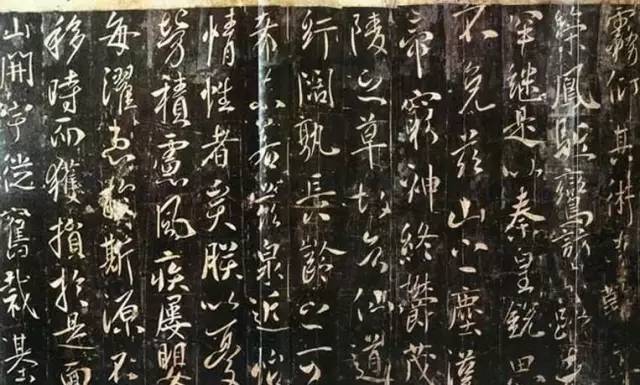 霧仰其術
鳳
罕継是以秦皇銳思
不免茲山之塵漢
帝窮神終鬱茂
陵之草 仙道
紆闊孰長齡之可
茲泉近怡
情性者矣朕以憂
勞積慮風疾屢嬰
每濯患於斯源不
移時而獲損於是面
山開宇從舊裁基